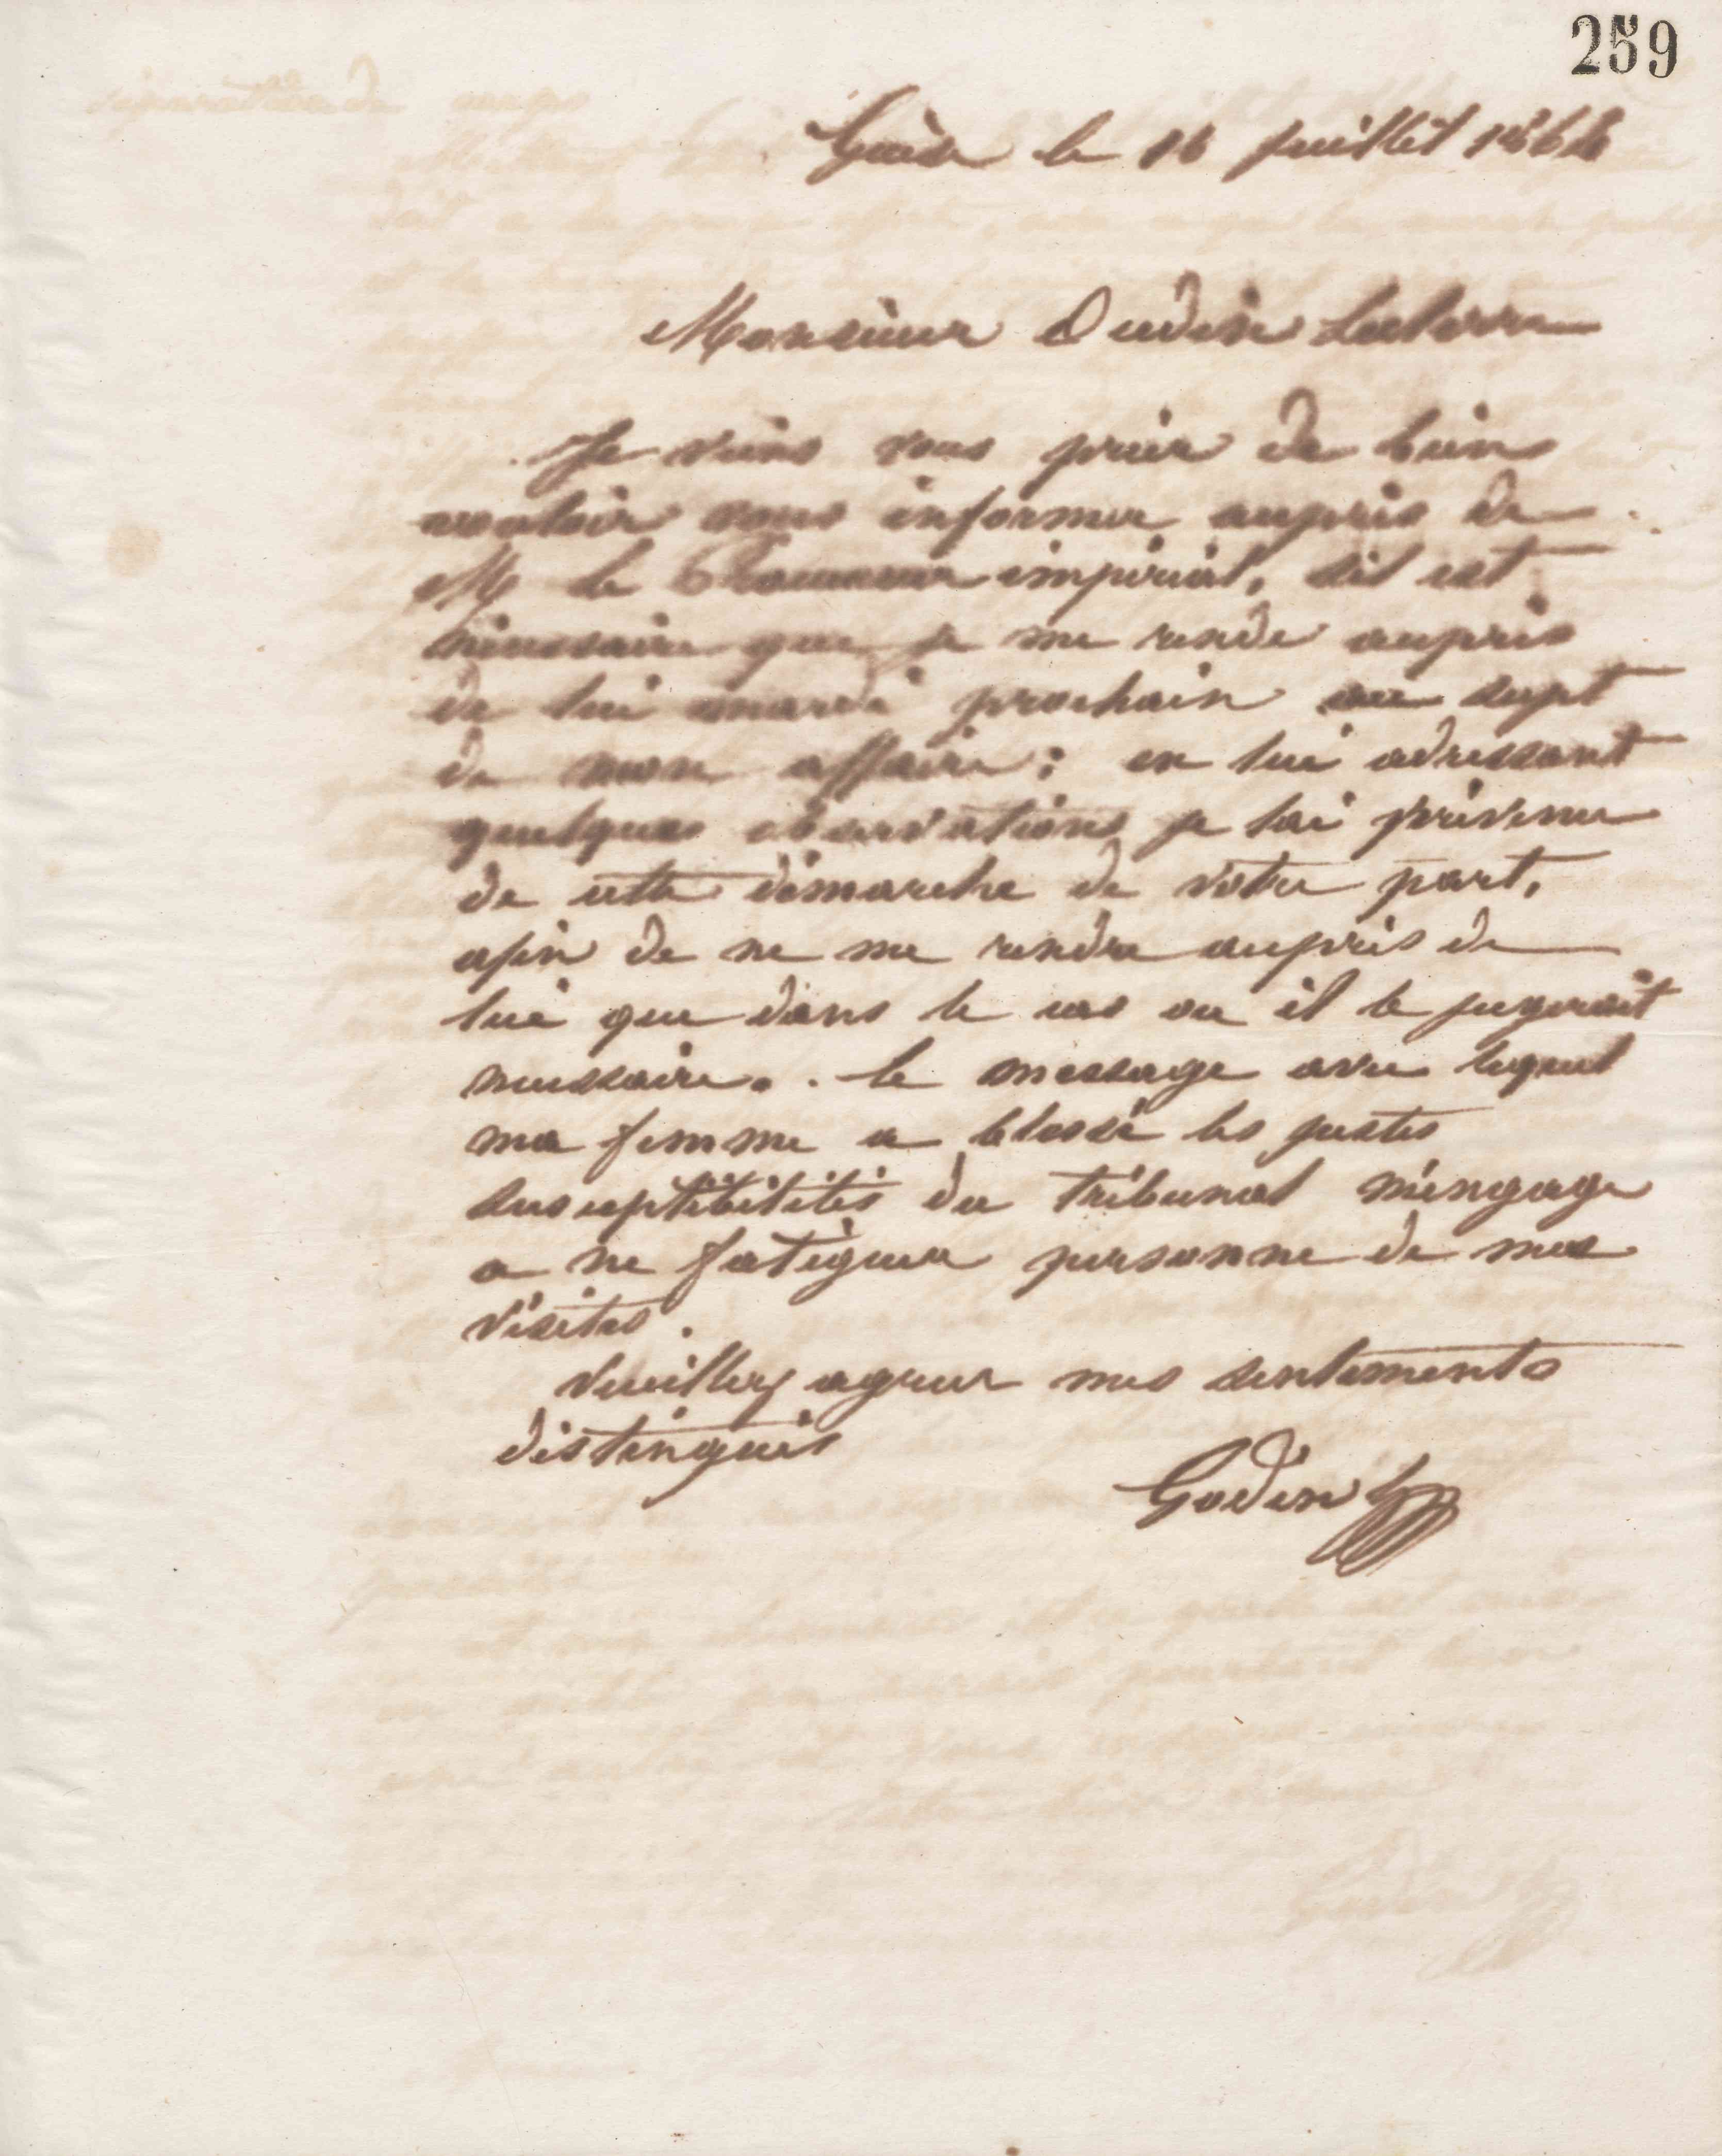 259
Guise le 16 juillet 1864
Monsieur Oudin Leclerre
Je viens vous prier de bien
vouloir vous informer auprès de
M le Procureur impérial, sil est
nécessaire que je me rende auprès
de lui mardi prochain au sujet
de mon affaire : en lui adressant
quelques observations je lai prévenu
de cette démarche de votre part,
afin de ne me rendre auprès de
lui que dans le cas ou il le jugerait
nécessaire. le message avec lequel
ma femme a blessé les justes
susceptibilités du tribunal m'engage
a ne fatiguer personne de mes
visites.
Veuillez agréer mes sentiments
distingués
Godin